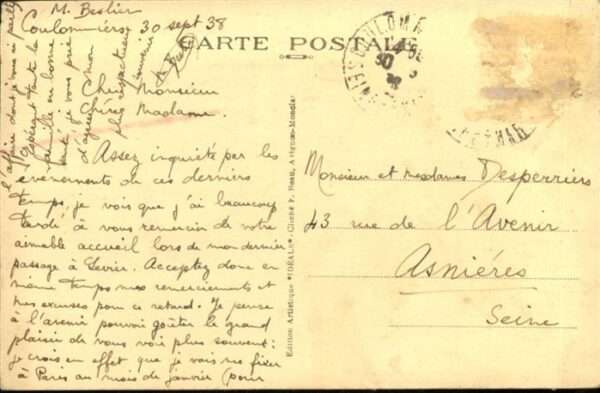 M. Beslier
Coulommiers, 30 sept 38
CARTE POSTALE
Cher Monsieur
Chère Madame.
Assez inquiété par les
évènements de ces derniers
temps, je vois que j'ai beaucoup
tardé à vous remercier de votre
aimable accueil lors de mon dernier
passage à Sevrier. Acceptez donc en
même temps mes remerciements et
mes excuses pour ce retard. Je pense
à l'avenir pouvoir goûter le grand
plaisir de vous voir plus souvent:
je crois en effet que je vais me fixer
à Paris au mois de janvier (pour
l'affaire dont je vous ai parlé)
Espérant toute la
famille en bonne
santé je vous prie
d'agréer mon
plus respectueux
souvenir
Edition Artistique "IDEALE"
Monsieur et madame Desperriers
43 rue de l'Avenir
Asnières
Seine